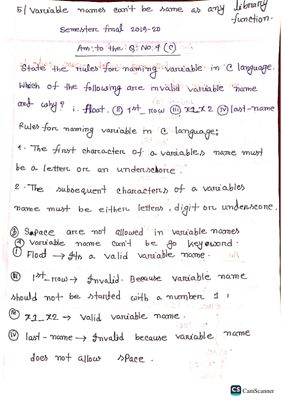 5/ Variable names can't be same as any library
function.
Semester final 2019-20
Ans: to the Q: No: 4 (c)
State the rules for naming variable in C language.
Which of the following are invalid variable name
and why? i. float. (ii) 1st_row (iii) x1_x2 (iv) last-name
Rules for naming variable in C language;
1. The first character of a variables name must
be a letter or an underschore.
2. The subsequent characters of a variables
name must be either letters, digit or underscore.
(3) Space are not allowed in variable names
(4) variable name can't be go keyword.
(i) Float → Its a valid variable name.
1st_row → Invalid. Because variable name
should not be started with a number 1,
x1_x2 → valid variable name.
(iv) last-name → Invalid because variable name
does not allow space.
CS CamScanner